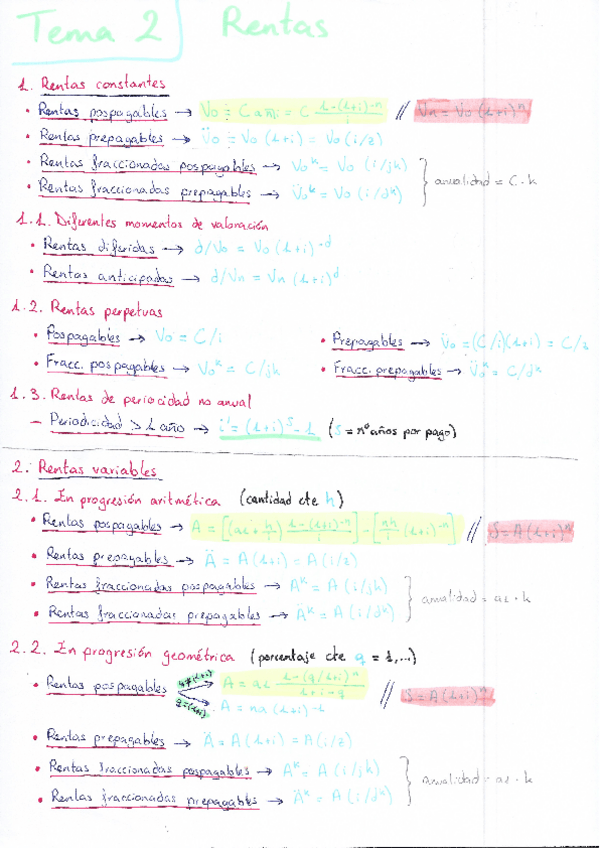 Tema 2 Rentas
1. Rentas constantes
• Rentas pospagables → Vo = C a n̄ i = C (1-(1+i)^-n)/i // Vn = Vo (1+i)^n
• Rentas prepagables → V̈o = Vo (1+i) = Vo (i/z)
• Rentas fraccionadas pospagables → Vo^k = Vo (i/jk)
• Rentas fraccionadas prepagables → V̈o^k = Vo (i/dk) } anualidad = C · k
1.1. Diferentes momentos de valoración
• Rentas diferidas → d/Vo = Vo (1+i)^-d
• Rentas anticipadas → d/Vn = Vn (1+i)^d
1.2. Rentas perpetuas
• Pospagables → Vo = C/i • Prepagables → V̈o = (C/i)(1+i) = C/z
• Fracc. pospagables → Vo^k = C/jk • Fracc. prepagables → V̈o^k = C/dk
1.3. Rentas de periocidad no anual
- Periodicidad > 1 año → i' = (1+i)^s - 1 (s = nº años por pago)
2. Rentas variables
2.1. En progresión aritmética (cantidad cte h)
• Rentas pospagables → A = [(a1 + h/i) (1-(1+i)^-n)/i] - [nh/i (1+i)^-n] // S = A(1+i)^n
• Rentas prepagables → Ä = A (1+i) = A (i/z)
• Rentas fraccionadas pospagables → A^k = A (i/jk)
• Rentas fraccionadas prepagables → Ä^k = A (i/dk) } anualidad = a1 · k
2.2. En progresión geométrica (porcentaje cte q = 1,...)
• Rentas pospagables q≠(1+i) A = a1 (1-(q/1+i)^n)/(1+i-q) // S = A(1+i)^n
q=(1+i) A = na (1+i)^-1
• Rentas prepagables → Ä = A (1+i) = A (i/z)
• Rentas fraccionadas pospagables → A^k = A (i/jk)
• Rentas fraccionadas prepagables → Ä^k = A (i/dk) } anualidad = a1 · k